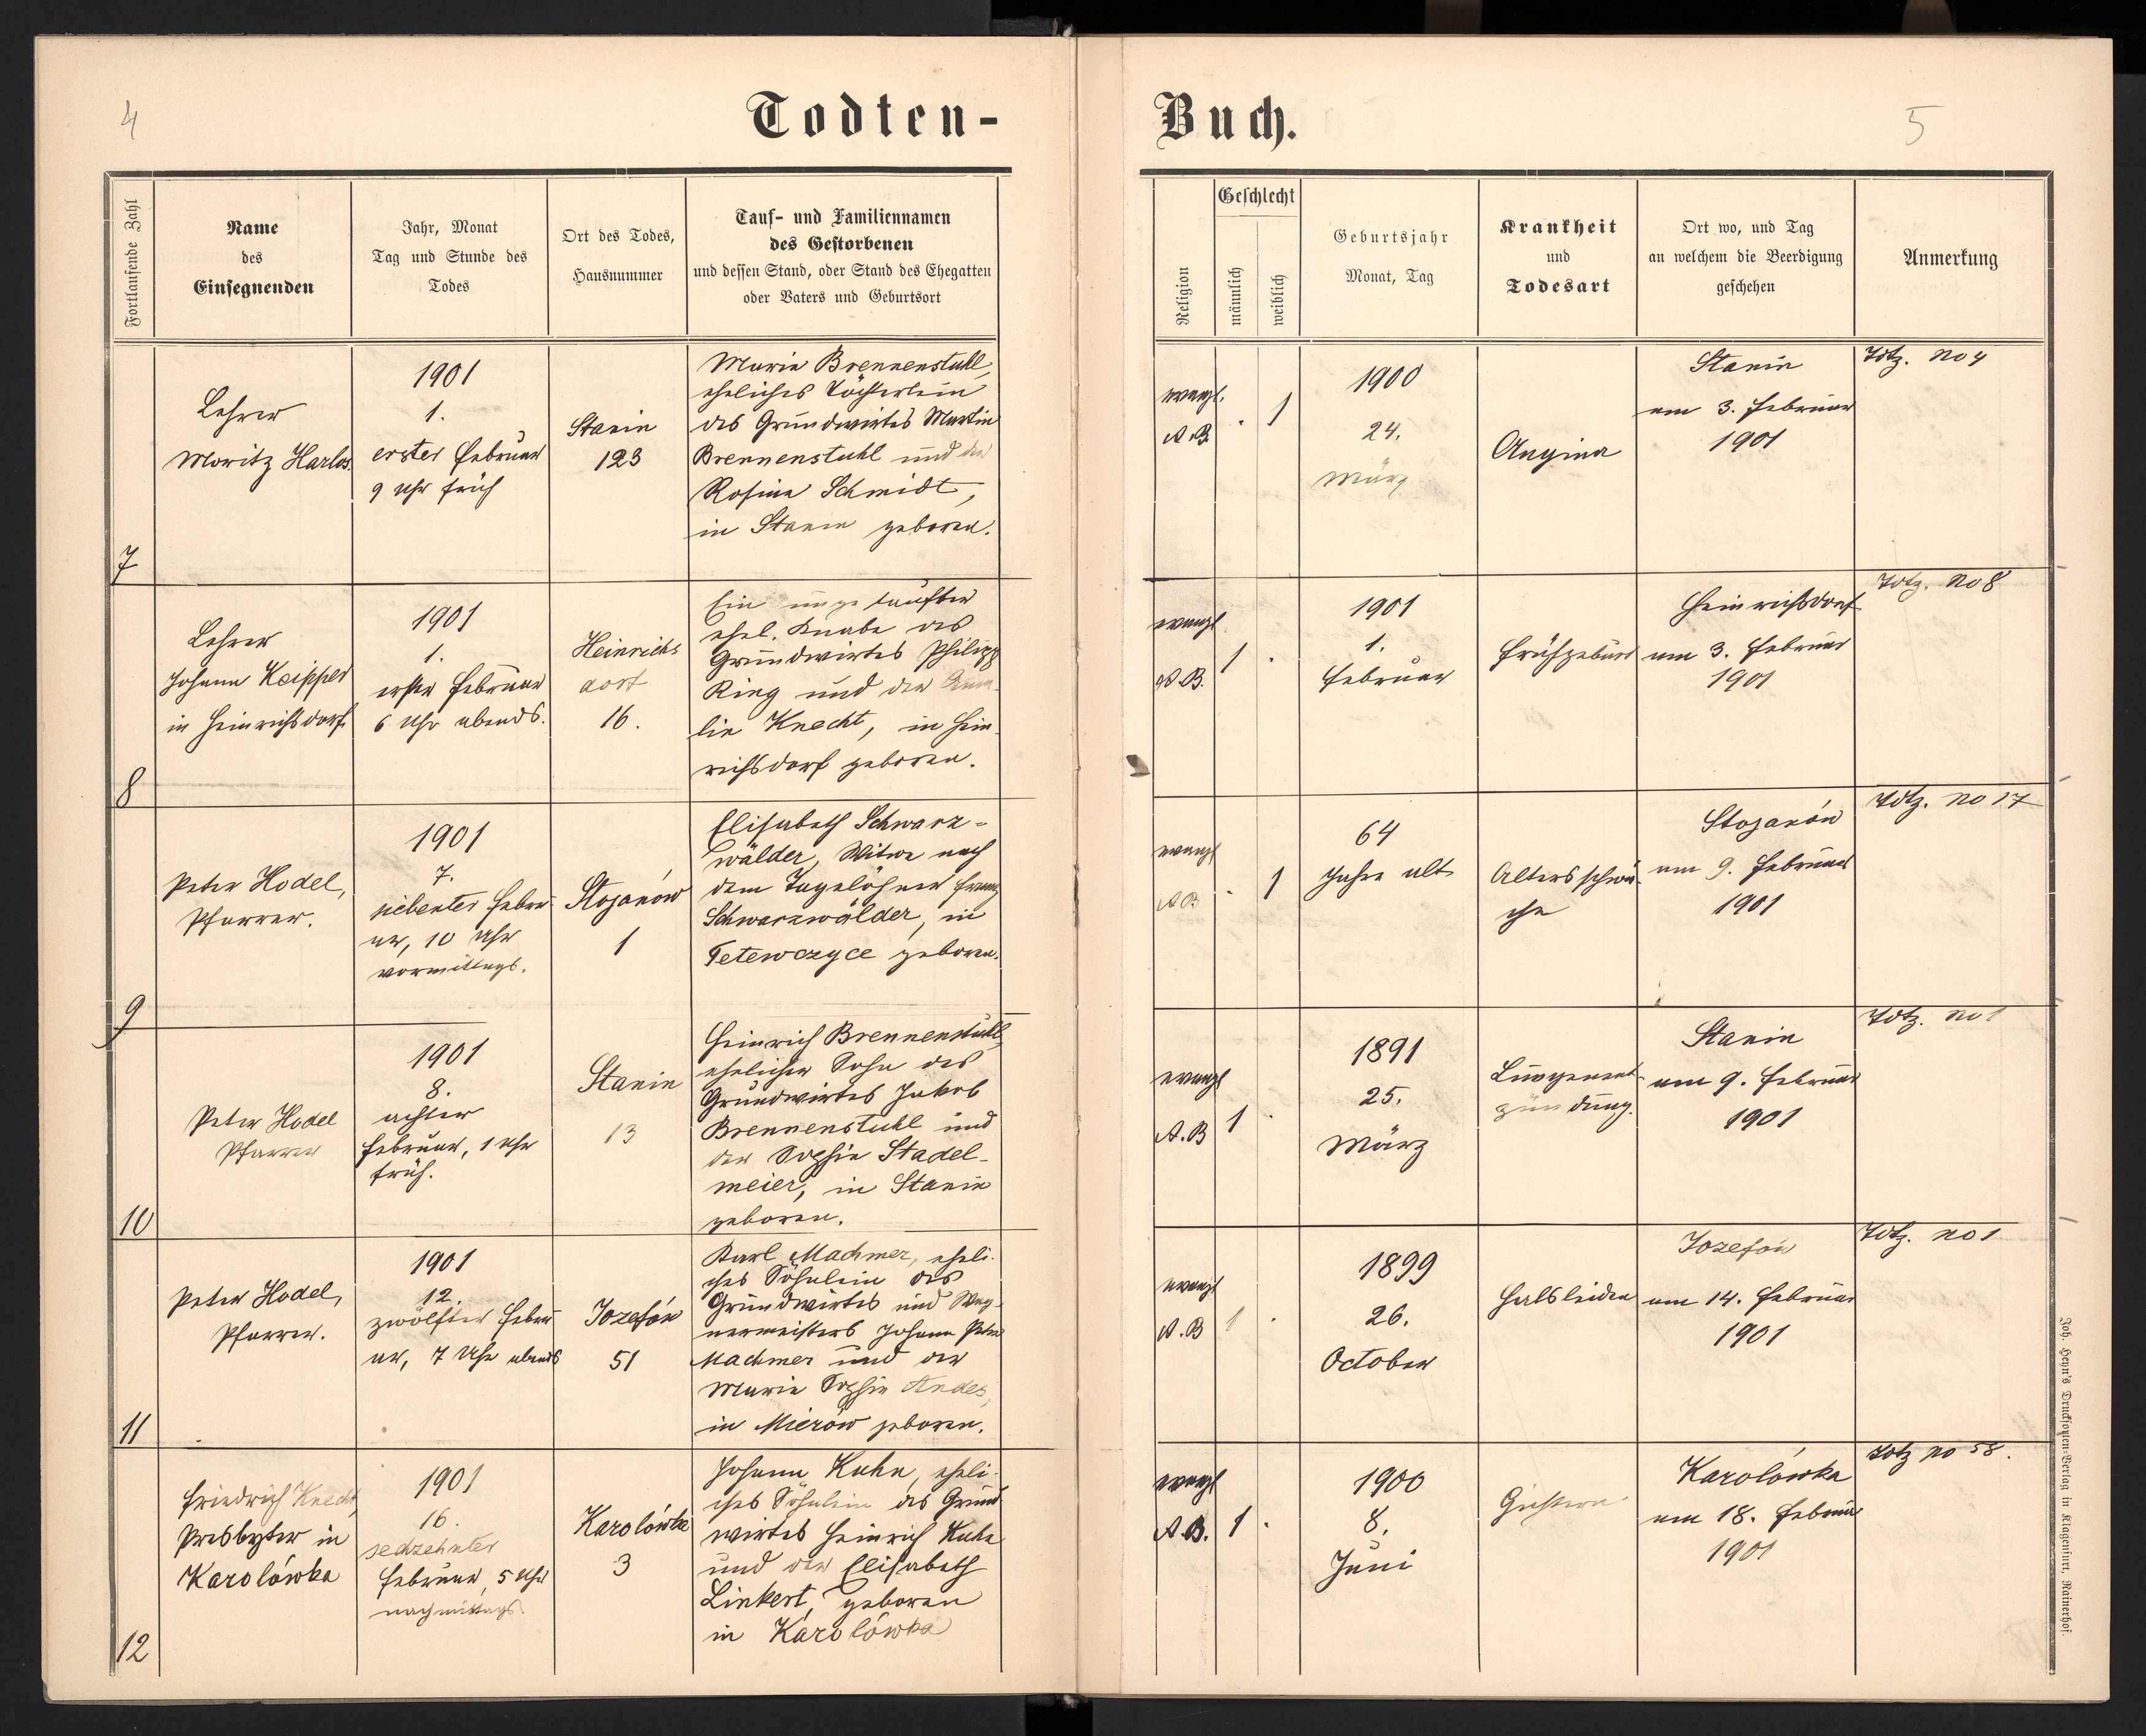 4
Todten-
Buch.
5
Fortlaufende Zahl
Name
des
Einsegnenden
Jahr, Monat
Tag und Stunde des
Todes
Ort des Todes,
Hausnummer
Tauf- und Familiennamen
des Gestorbenen
und dessen Stand, oder Stand des Ehegatten
oder Vaters und Geburtsort
Religion
Geschlecht
männlich
weiblich
Geburtsjahr
Monat, Tag
Krankheit
und
Todesart
Ort wo, und Tag
an welchem die Beerdigung
geschehen
Anmerkung
7
Lehrer
Moritz Harlos.
1901
1.
erster Februar
9 Uhr früh
Stanin
123
Maria Brennenstuhl,
eheliches Töchterlein
des Grundwirtes Martin
Brennenstuhl und der
Rosina Schmidt,
in Stanin geboren.
evangl.
A.B.
. 1
1900
24.
März
Angina
Stanin
am 3. Februar
1901
Totz. No 4
8
Lehrer
Johann Keipper
in Heinrichsdorf
1901
1.
erster Februar
6 Uhr abends.
Heinrichs
dorf
16.
Ein ungetaufter
ehel. Knabe des
Grundwirtes Philipp
Ring und der
Knecht, in Hein-
richsdorf geboren.
evangl
A.B.
1 .
1901
1.
Februar
Frühgeburt
Heinrichsdorf
am 3. Februar
1901
Totz. No 8
9
Peter Hodel,
Pfarrer.
1901
7.
siebenter Febru-
ar, 10 Uhr
vormittags.
Stojanów
1
Elisabeth Schwarz-
wälder, Witwe nach
dem Tagelöhner Franz
Schwarzwälder, in
Tetewczyce geboren.
evangl
A.B.
. 1
64
Jahre alt
Altersschwä-
che
Stojanów
am 9. Februar
1901
Totz. No 17
10
Peter Hodel
Pfarrer
1901
8.
achter
Februar, 1 Uhr
früh.
Stanin
13
Heinrich Brennenstuhl,
ehelicher Sohn des
Grundwirtes Jakob
Brennenstuhl und
der Sophie Stadel-
meier, in Stanin
geboren.
evangl
A.B
1 .
1891
25.
März
Lungenent-
zündung.
Stanin
am 9. Februar
1901
Totz. No 1
11
Peter Hodel,
Pfarrer.
1901
12.
zwölfter Febru
ar, 7 Uhr abends
Józefów
51
Karl Machmer, eheli-
ches Söhnlein des
Grundwirtes und Wag-
nermeisters Johann Peter
Machmer und der
Maria Sophie Andes,
in Mierów geboren.
evangl
A.B
1 .
1899
26.
October
Halsleiden
Józefów
am 14. Februar
1901
Totz. No 1
12
Friedrich Knecht,
Presbyter in
Karolówka
1901
16.
sechzehnter
Februar, 5 Uhr
nachmittags.
Karolówka
3
Johann Kuhn, eheli-
ches Söhnlein des Grund
wirtes Heinrich Kuhn
und der Elisabeth
Linkert, geboren
in Karolówka
evangl
A.B.
1 .
1900
8.
Juni
Karolówka
am 18. Februar
1901
Totz No 58.
Joh. Heyn's Drucksorten-Verlag in Klagenfurt, Rainerhof.